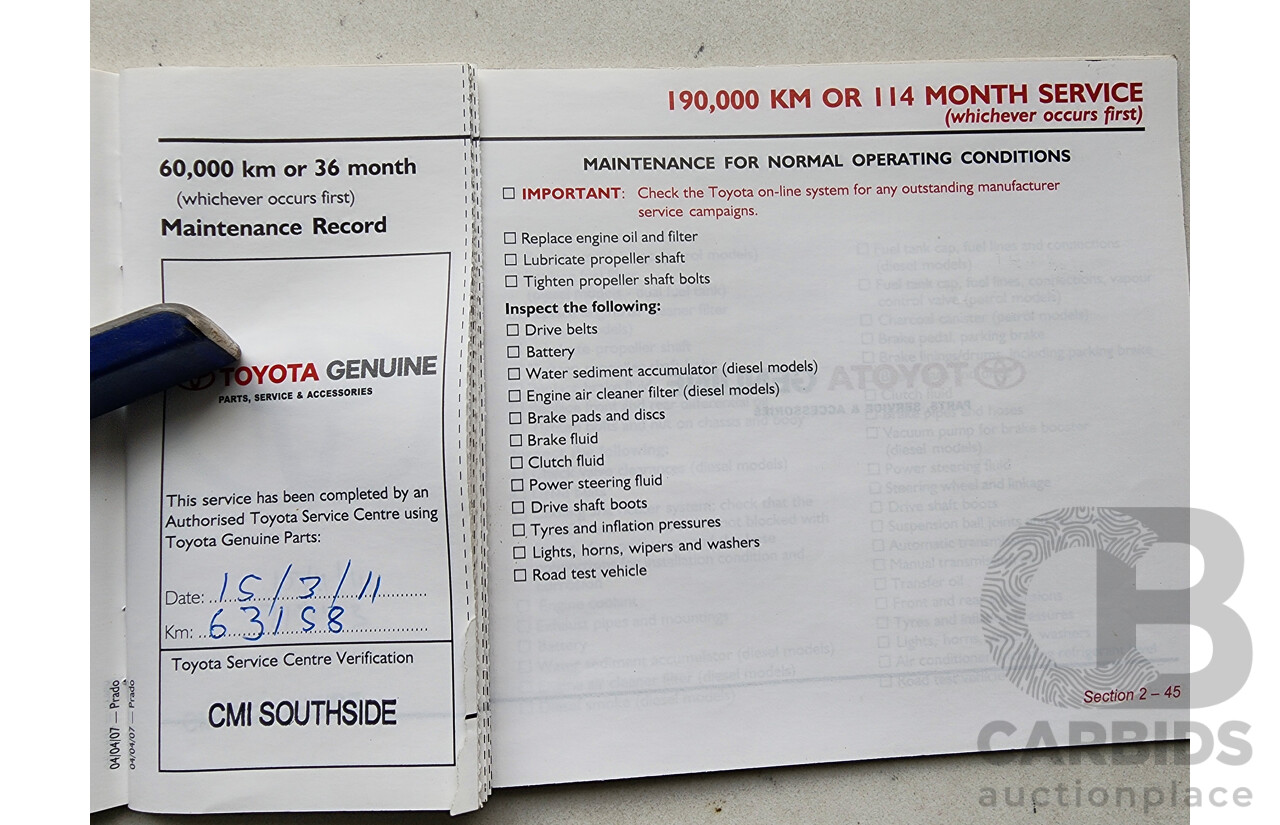 60,000 km or 36 month
(whichever occurs first)
Maintenance Record
TOYOTA GENUINE
PARTS, SERVICE & ACCESSORIES
This service has been completed by an
Authorised Toyota Service Centre using
Toyota Genuine Parts:
Date: 15/3/11
Km: 63158
Toyota Service Centre Verification
CMI SOUTHSIDE
04/04/07 — Prado
04/04/07 — Prado
190,000 KM OR 114 MONTH SERVICE
(whichever occurs first)
MAINTENANCE FOR NORMAL OPERATING CONDITIONS
IMPORTANT: Check the Toyota on-line system for any outstanding manufacturer
service campaigns.
Replace engine oil and filter
Lubricate propeller shaft
Tighten propeller shaft bolts
Inspect the following:
Drive belts
Battery
Water sediment accumulator (diesel models)
Engine air cleaner filter (diesel models)
Brake pads and discs
Brake fluid
Clutch fluid
Power steering fluid
Drive shaft boots
Tyres and inflation pressures
Lights, horns, wipers and washers
Road test vehicle
Section 2 – 45
CB
CARBIDS
auctionplace